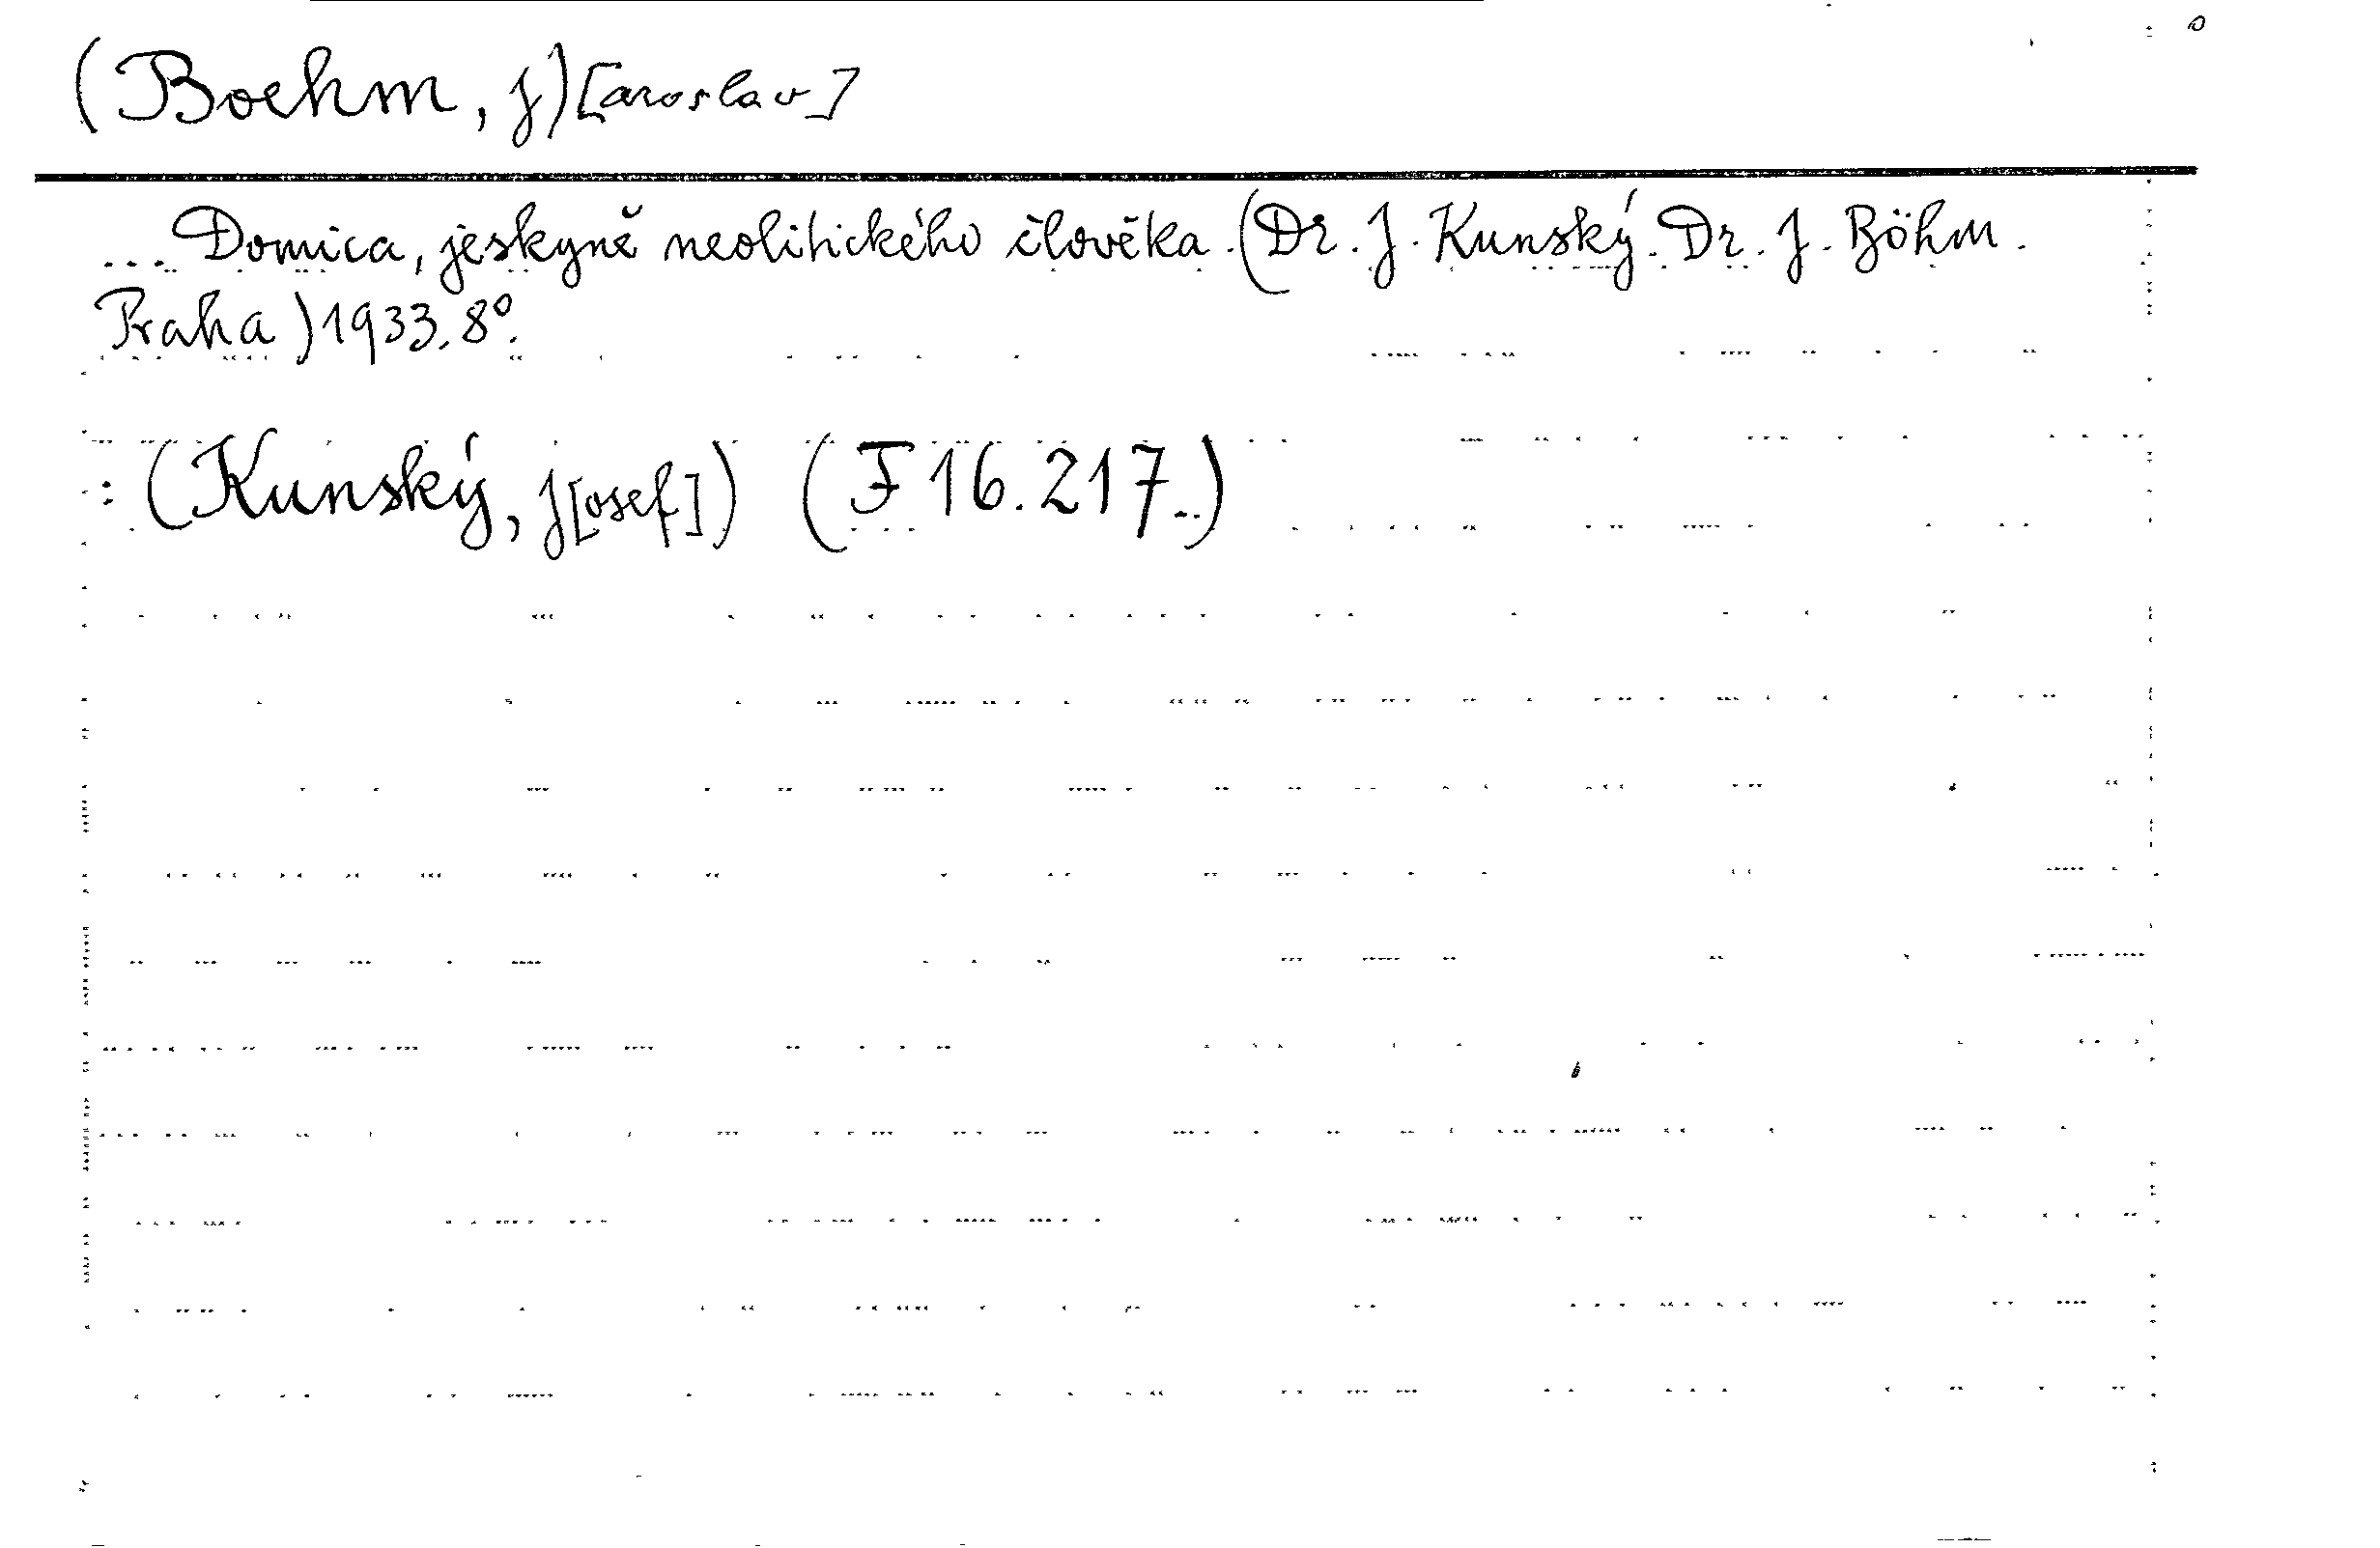 (Boehm, J)[aroslav]
... Domica, jeskyně neolitického člověka. (Dr. J. Kunský. Dr. J. Böhm.
Praha) 1933. 8°.
: (Kunský, J[osef]) (F 16.217.)